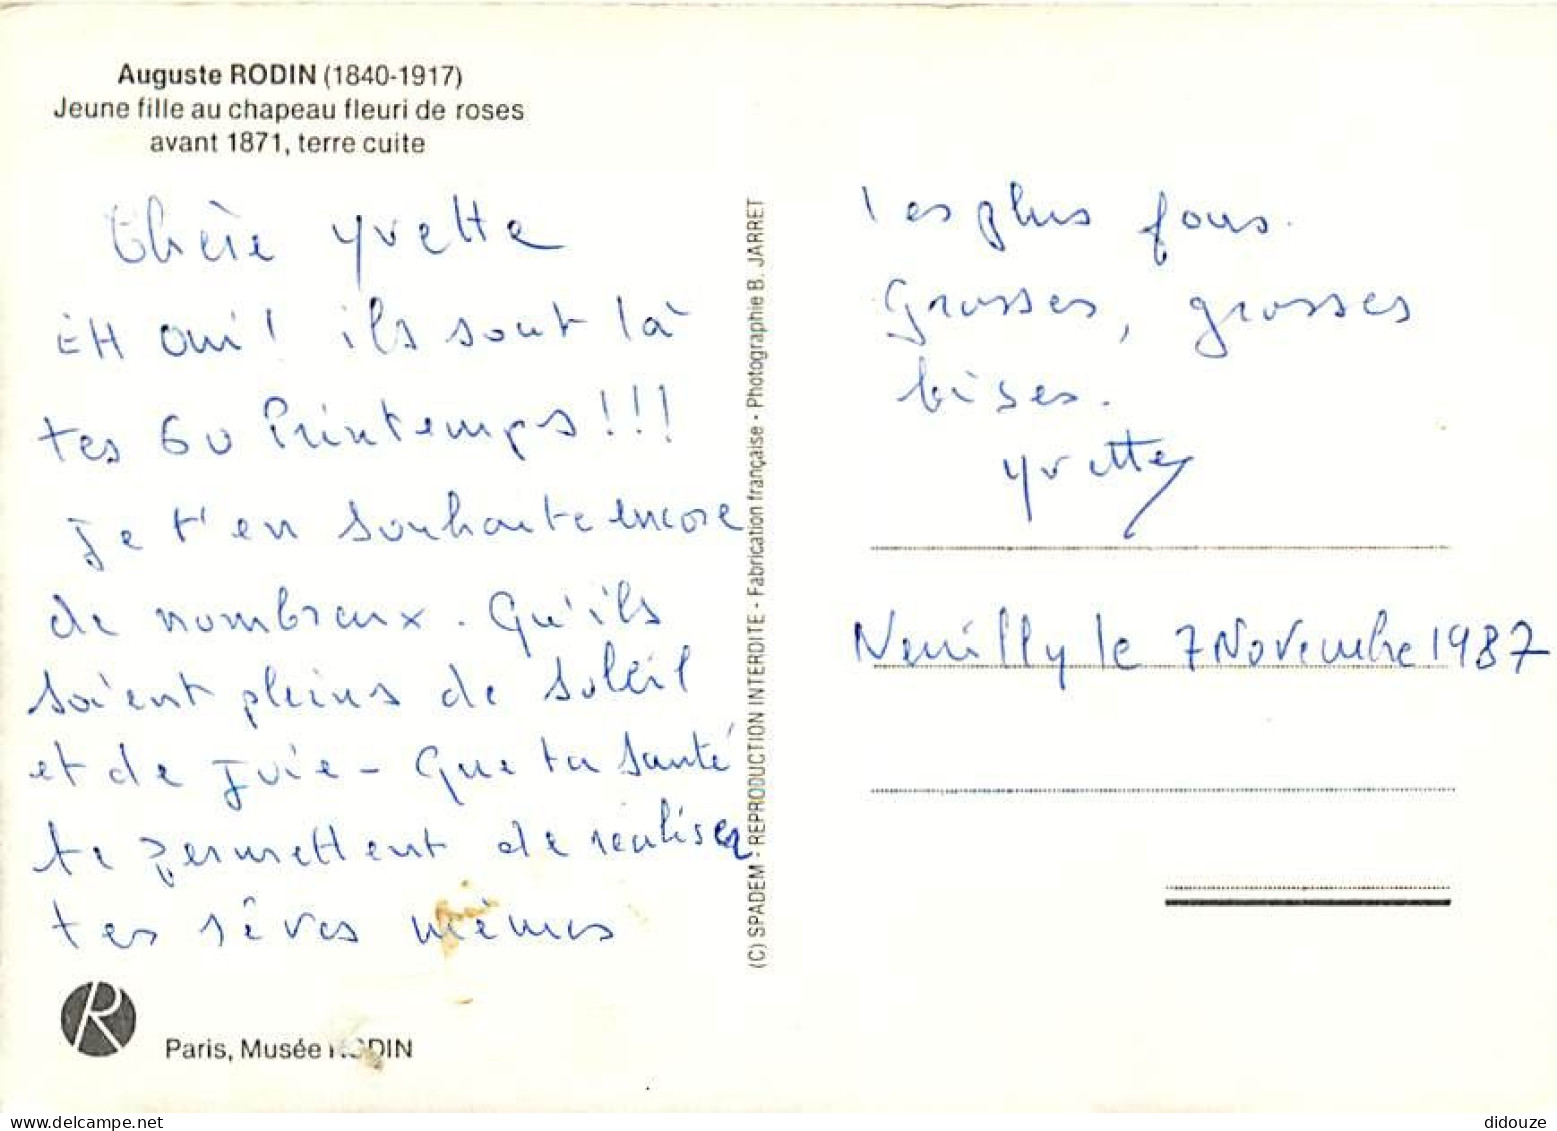 Auguste RODIN (1840-1917)
Jeune fille au chapeau fleuri de roses
avant 1871, terre cuite
Chère Yvette
EH oui! ils sont là
tes 60 Printemps!!!
Je t'en souhaite encore
de nombreux. Qu'ils
soient pleins de soleil
et de joie - Que ta santé
te permettent de réaliser
tes rêves mêmes
Paris, Musée RODIN
(C) SPADEM - REPRODUCTION INTERDITE - Fabrication française - Photographie B. JARRET
les plus fous.
Grosses, grosses
bises.
Yvette
Neuilly le 7 Novembre 1987
didouze